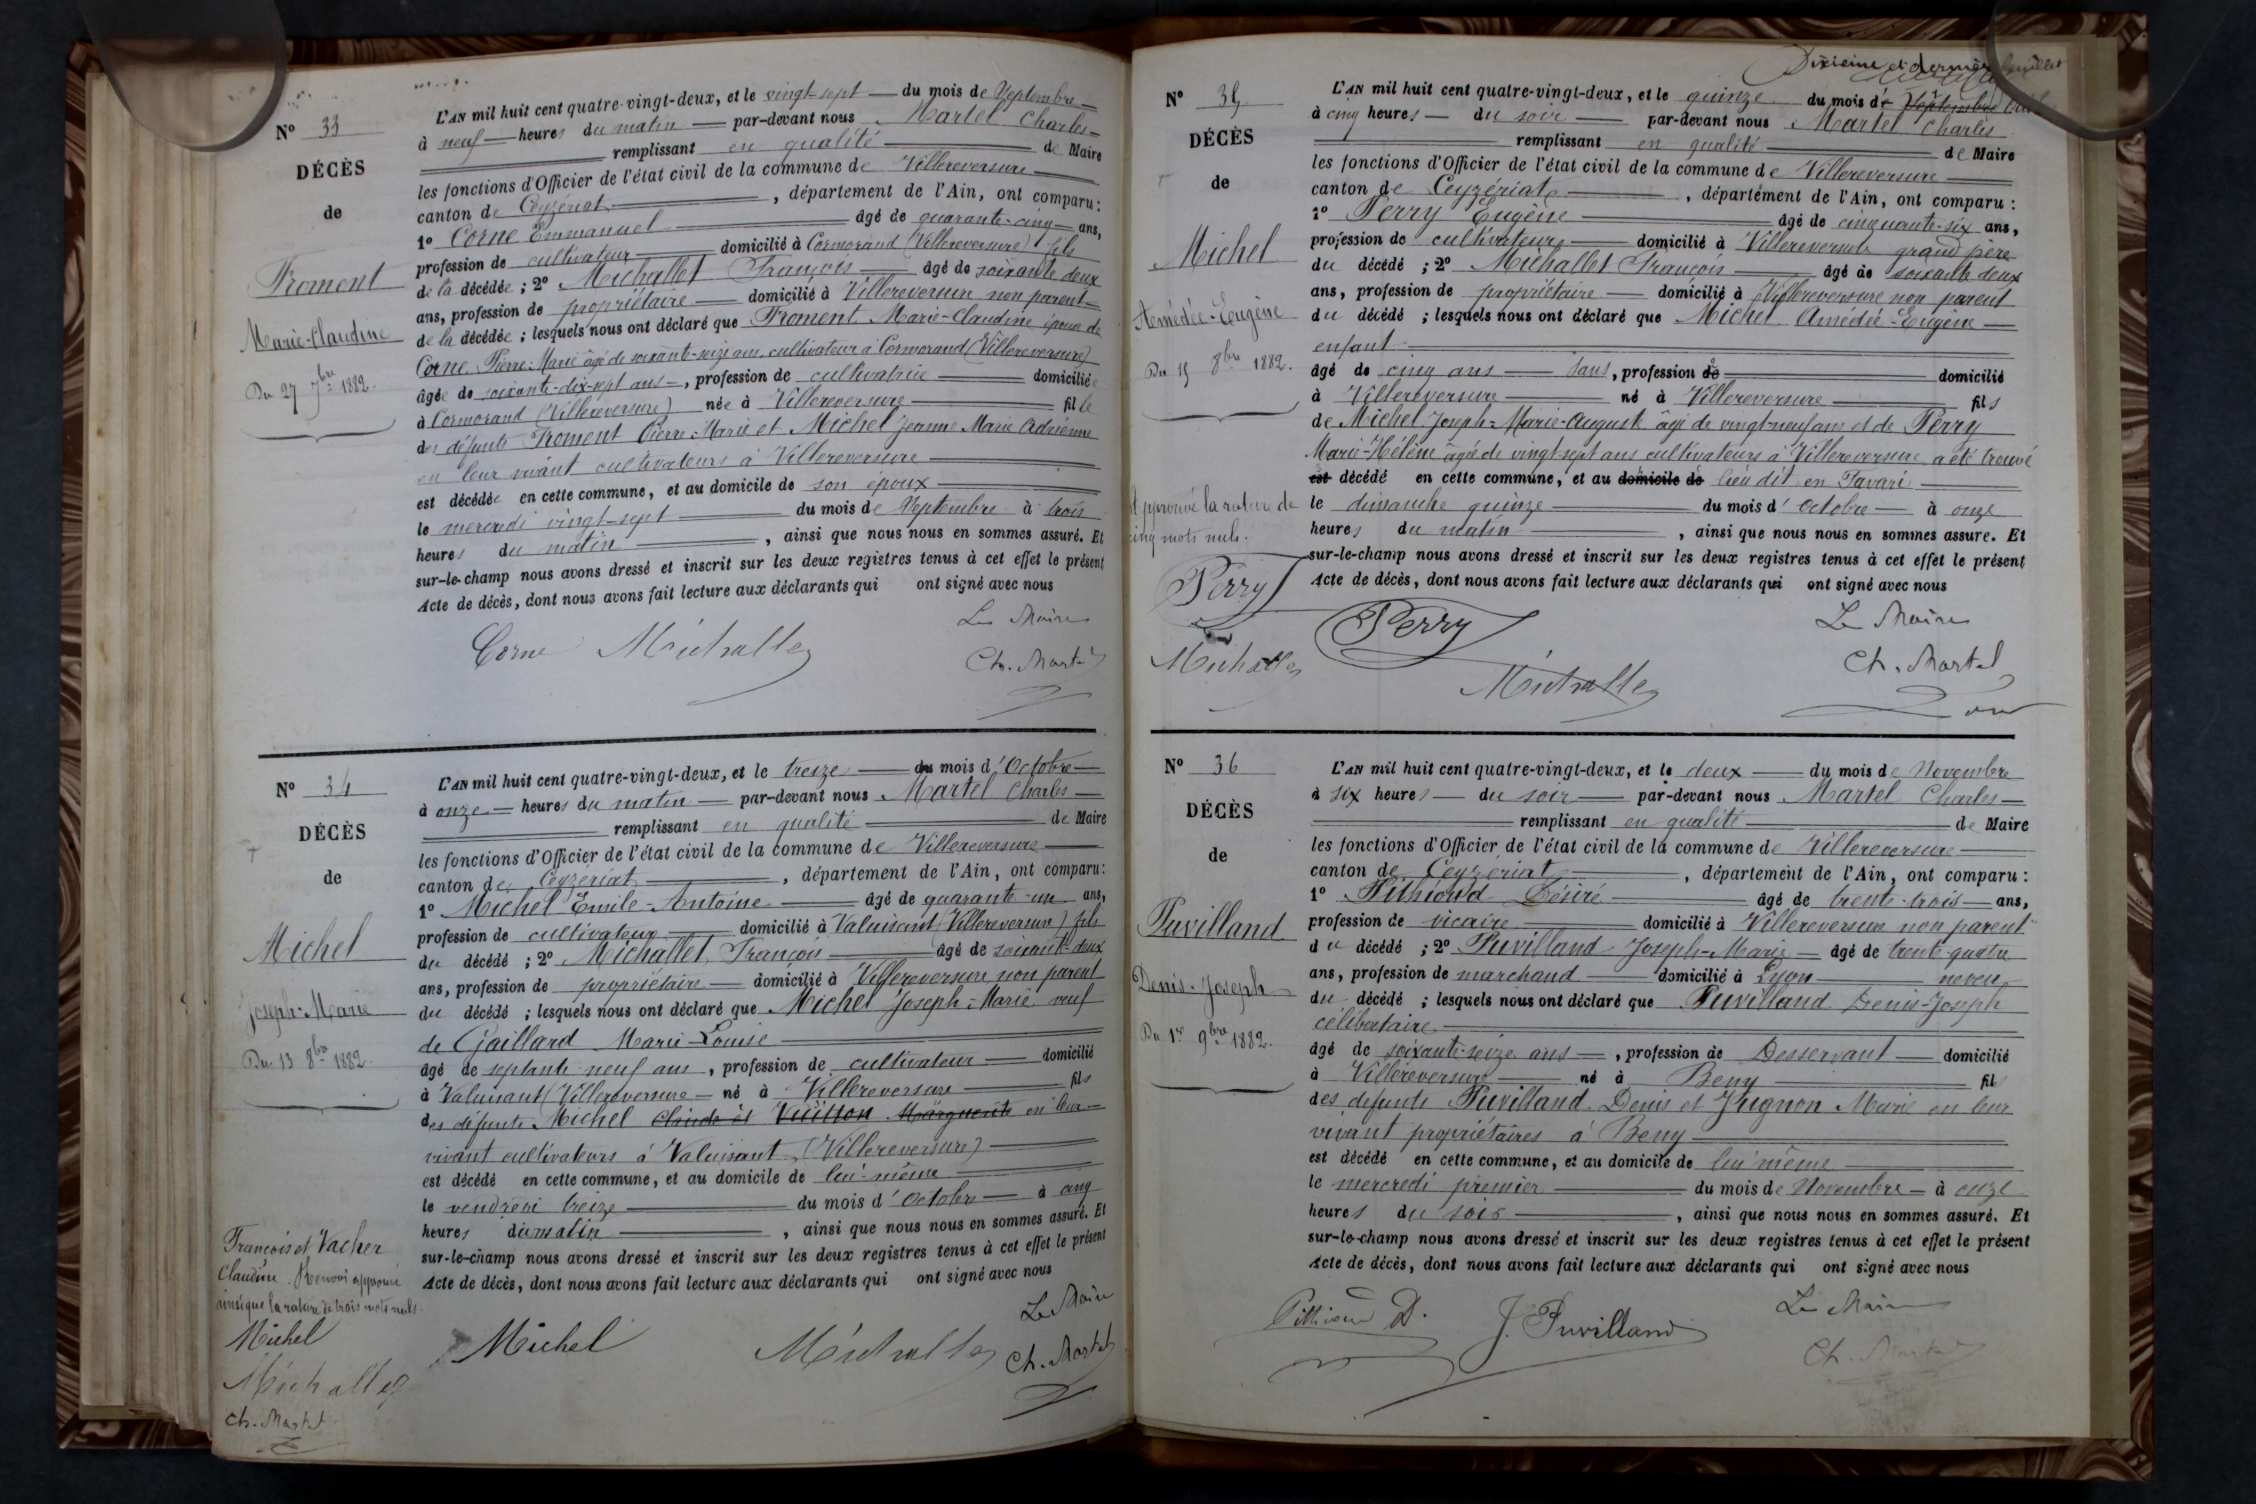 N° 33
DÉCÈS
de
Froment
Marie-Claudine
Du 27 7bre 1882.
L'AN mil huit cent quatre-vingt-deux, et le vingt-sept du mois de Septembre
à neuf heures du matin par-devant nous Martel Charles
remplissant en qualité de Maire
les fonctions d'Officier de l'état civil de la commune de Villereversure
canton de Ceyzériat, département de l'Ain, ont comparu:
1° Corne Emmanuel âgé de quarante-cinq ans,
profession de cultivateur domicilié à Cormorand (Villereversure) fils
de la décédée; 2° Michallet François âgé de soixante deux
ans, profession de propriétaire domicilié à Villereversure non parent
de la décédée; lesquels nous ont déclaré que Froment Marie-Claudine épouse de
Corne Pierre-Marie âgé de soixante-seize ans, cultivateur à Cormorand (Villereversure)
âgée de soixante-dix-sept ans, profession de cultivatrice domiciliée
à Cormorand (Villereversure) née à Villereversure fille
des défunts Froment Pierre-Marie et Michel Jeanne Marie Adrienne
en leur vivant cultivateurs à Villereversure
est décédée en cette commune, et au domicile de son époux
le mercredi vingt-sept du mois de Septembre à trois
heures du matin, ainsi que nous nous en sommes assuré. Et
sur-le-champ nous avons dressé et inscrit sur les deux registres tenus à cet effet le présent
Acte de décès, dont nous avons fait lecture aux déclarants qui ont signé avec nous
Le Maire
Corne Michallet Ch. Martel
N° 34
DÉCÈS
de
Michel
Joseph-Marie
Du 13 8bre 1882.
L'AN mil huit cent quatre-vingt-deux, et le treize du mois d'Octobre
à onze heures du matin par-devant nous Martel Charles
remplissant en qualité de Maire
les fonctions d'Officier de l'état civil de la commune de Villereversure
canton de Ceyzériat, département de l'Ain, ont comparu:
1° Michel Emile-Antoine âgé de quarante-un ans,
profession de cultivateur domicilié à Valuisant (Villereversure) fils
du décédé; 2° Michallet François âgé de soixante-deux
ans, profession de propriétaire domicilié à Villereversure non parent
du décédé; lesquels nous ont déclaré que Michel Joseph-Marie veuf
de Gaillard Marie-Louise
âgé de septante neuf ans, profession de cultivateur domicilié
à Valuisant (Villereversure né à Villereversure fils
des défunts Michel Claude et Vuitton Marguerite en leur
vivant cultivateurs à Valuisant (Villereversure)
est décédé en cette commune, et au domicile de lui-même
le vendredi treize du mois d'Octobre à cinq
heures du matin, ainsi que nous nous en sommes assuré. Et
sur-le-champ nous avons dressé et inscrit sur les deux registres tenus à cet effet le présent
Acte de décès, dont nous avons fait lecture aux déclarants qui ont signé avec nous
Le Maire
Michel Michallet Ch. Martel
François et Vacher
Claudine. Renvoi approuvé
ainsi que la rature de trois mots nuls.
Michel
Michallet
Ch. Martel
Dixième et dernier feuillet
N° 35
DÉCÈS
de
Michel
Amédée-Eugène
Du 15 8bre 1882.
L'AN mil huit cent quatre-vingt-deux, et le quinze du mois d' Septembre
à cinq heures du soir par-devant nous Martel Charles
remplissant en qualité de Maire
les fonctions d'Officier de l'état civil de la commune de Villereversure
canton de Ceyzériat, département de l'Ain, ont comparu:
1° Perry Eugène âgé de cinquante-six ans,
profession de cultivateur domicilié à Villereversure grand père
du décédé; 2° Michallet François âgé de soixante deux
ans, profession de propriétaire domicilié à Villereversure non parent
du décédé; lesquels nous ont déclaré que Michel Amédée-Eugène
enfant
âgé de cinq ans Sans, profession de domicilié
à Villereversure né à Villereversure fils
de Michel Joseph-Marie-Auguste âgé de vingt-neuf ans et de Perry
Marie-Hélène âgée de vingt-sept ans cultivateurs à Villereversure a été trouvé
est décédé en cette commune, et au domicile de lieu dit en Tavari
le dimanche quinze du mois d'octobre à onze
heures du matin, ainsi que nous nous en sommes assuré. Et
sur-le-champ nous avons dressé et inscrit sur les deux registres tenus à cet effet le présent
Acte de décès, dont nous avons fait lecture aux déclarants qui ont signé avec nous
Approuvé la rature de
cinq mots nuls.
Perry
Michallet
Le Maire
Perry Michallet Ch. Martel
N° 36
DÉCÈS
de
Puvilland
Denis-Joseph
Du 1er 9bre 1882.
L'AN mil huit cent quatre-vingt-deux, et le deux du mois de Novembre
à six heures du soir par-devant nous Martel Charles
remplissant en qualité de Maire
les fonctions d'Officier de l'état civil de la commune de Villereversure
canton de Ceyzériat, département de l'Ain, ont comparu:
1° Pithioud Désiré âgé de trente-trois ans,
profession de vicaire domicilié à Villereversure non parent
du décédé; 2° Puvilland Joseph-Marie âgé de trente-quatre
ans, profession de marchand domicilié à Lyon neveu
du décédé; lesquels nous ont déclaré que Puvilland Denis-Joseph
célibataire
âgé de soixante-seize ans, profession de Desservant domicilié
à Villereversure né à Beny fils
des défunts Puvilland Denis et Jugnon Marie en leur
vivant propriétaires à Beny
est décédé en cette commune, et au domicile de lui même
le mercredi premier du mois de Novembre à onze
heures du soir, ainsi que nous nous en sommes assuré. Et
sur-le-champ nous avons dressé et inscrit sur les deux registres tenus à cet effet le présent
Acte de décès, dont nous avons fait lecture aux déclarants qui ont signé avec nous
Le Maire
D. J. Puvilland Ch. Martel